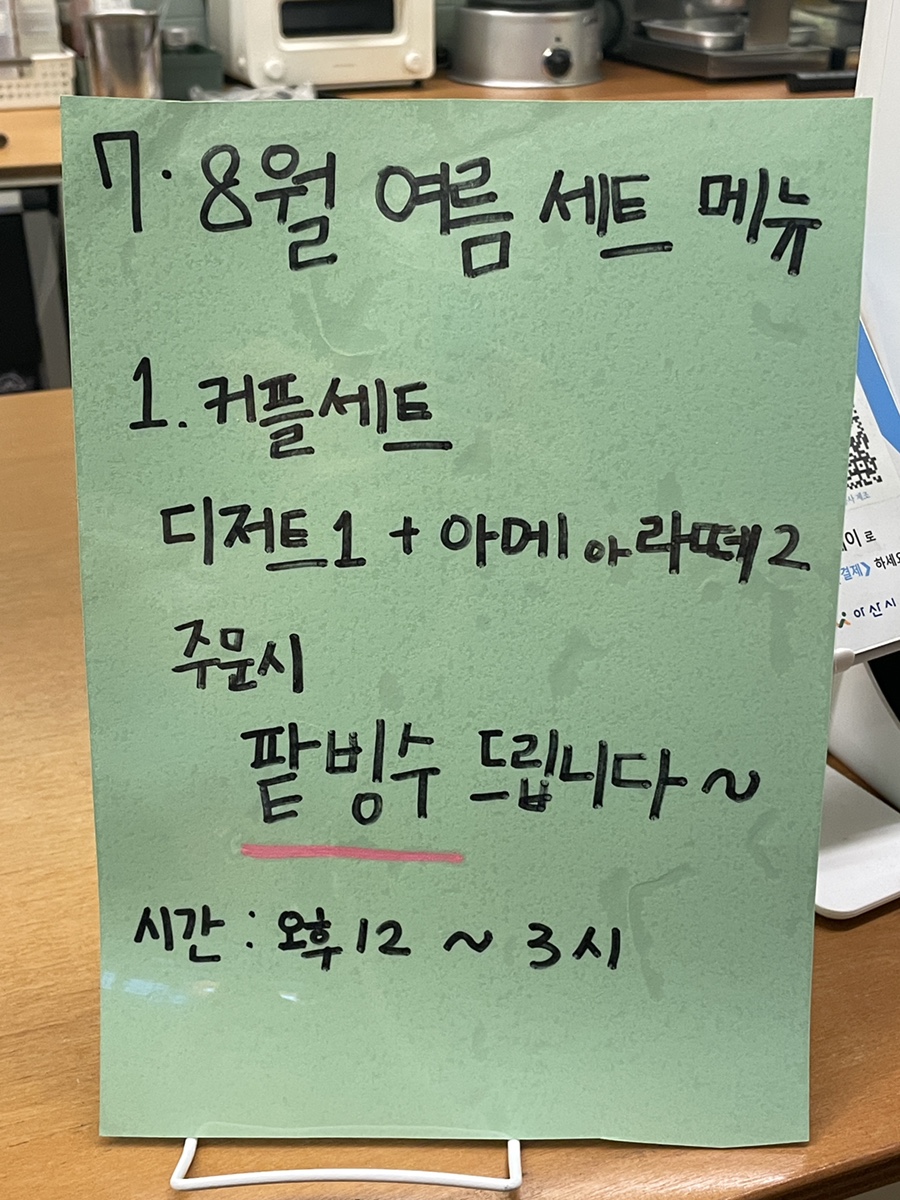 7·8월 여름 세트 메뉴
1. 커플세트
디저트1 + 아메 아라떼2
주문시
팥빙수 드립니다~
시간 : 오후12 ~ 3시
이로
결제》 하세요
아산시